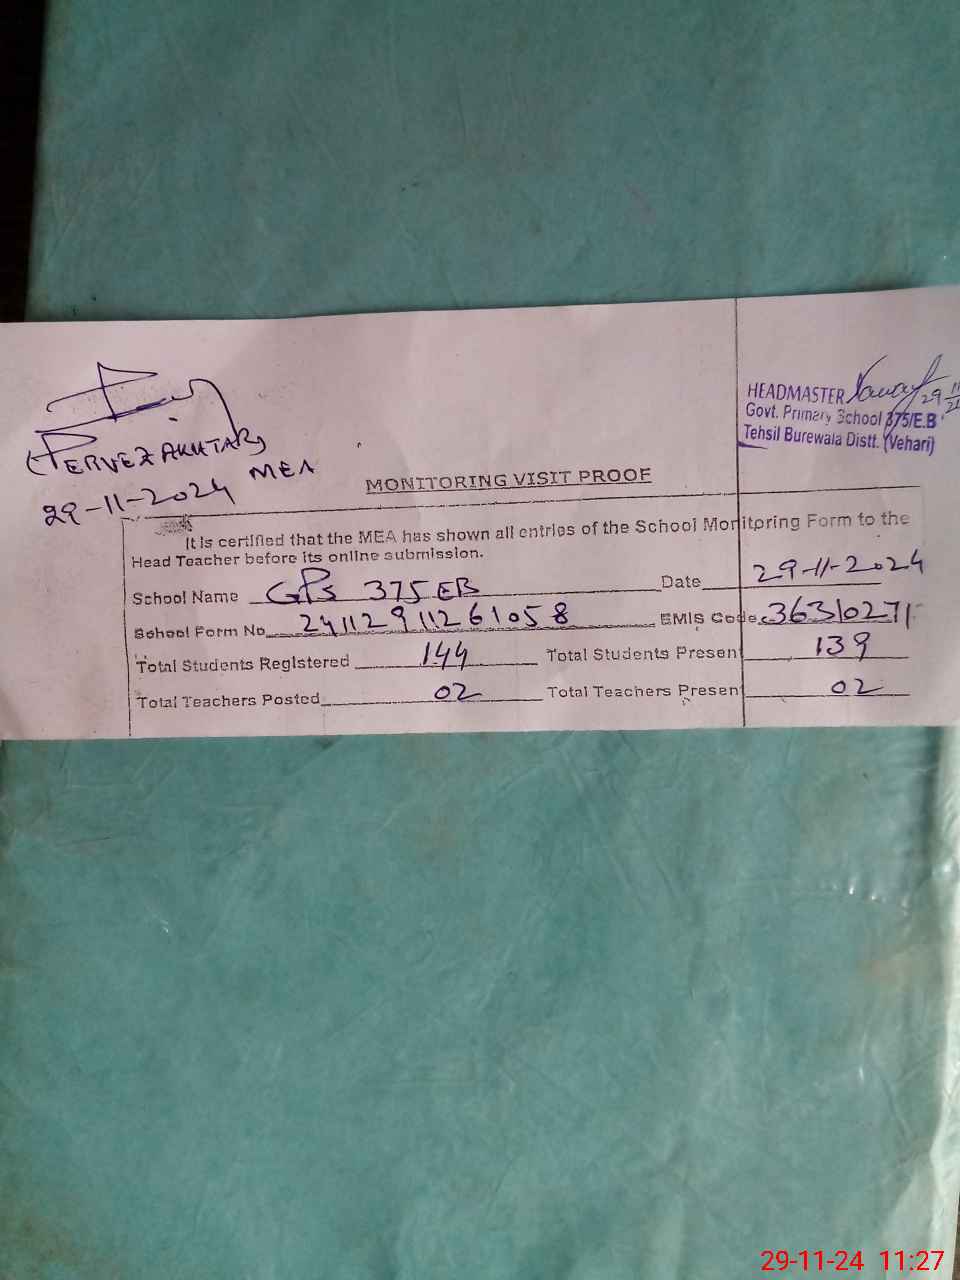 (PERVEZ AKHTAR)
MEA
29-11-2024
HEADMASTER 29-11
Govt. Primary School 375/E.B
Tehsil Burewala Distt. (Vehari)
MONITORING VISIT PROOF
It is certified that the MEA has shown all entries of the School Monitoring Form to the
Head Teacher before its online submission.
School Name GPS 375 EB Date 29-11-2024
School Form No. 24112911261058 EMIS Code. 36310271
Total Students Registered 144 Total Students Present 139
Total Teachers Posted 02 Total Teachers Present 02
29-11-24 11:27